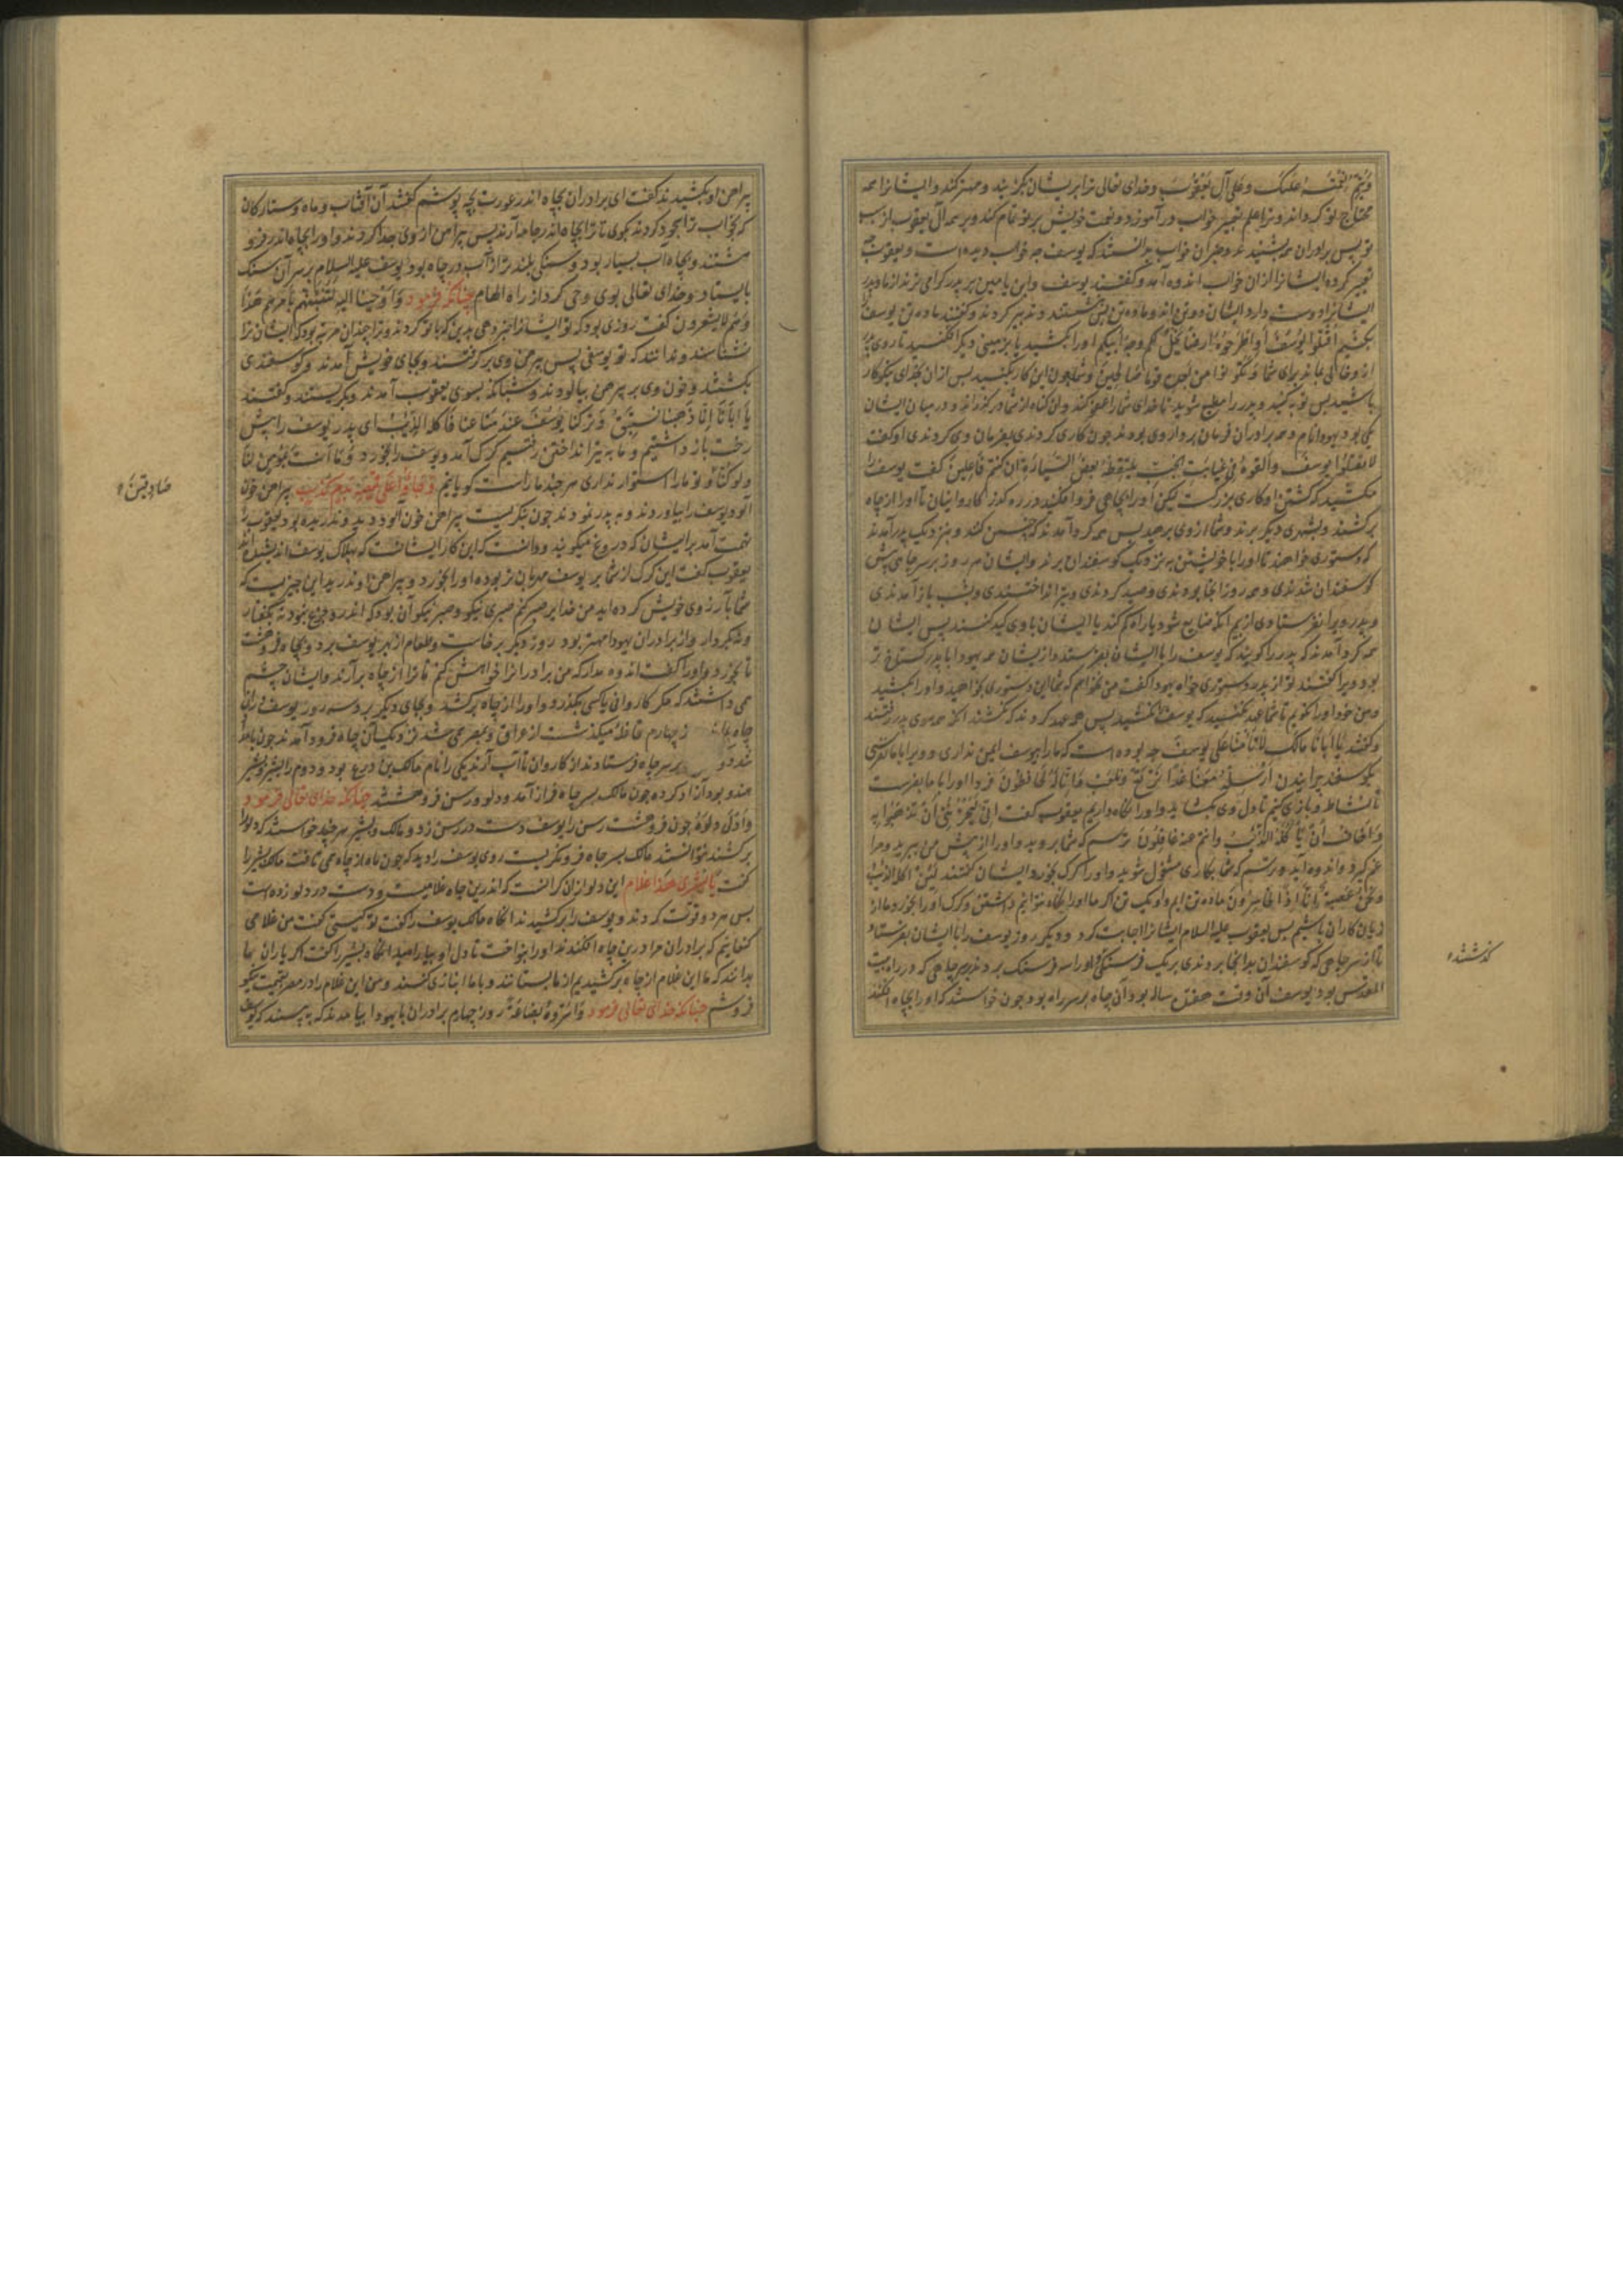 وَيُتِمُّ نِعْمَتَهُ عَلَيْكَ وَعَلَى آلِ يَعْقُوبَ وخدای تعالی ترا بر ایشان بگزیند ومهتر کند وایشانرا همه
محتاج تو گرداند وترا علم تعبیر خواب درآموزد ونعمت خویش بر تو تمام کند وبر همه آل یعقوب از
تو پس برادران بشنیدند وخبر آن خواب بدانستند که یوسف چه خواب دیده است ویعقوب چه
تعبیر کرده ایشانرا از آن خواب اندوه آمد وگفتند یوسف وابن یامین بر پدر گرامی ترند از ما وپدر
ایشانرا دوست دارد ایشان دو تن اند وما ده تن پس بنشستند وتدبیر کردند وگفتند ما ده تن یوسف را
بکشیم اُقْتُلُوا يُوسُفَ أَوِ اطْرَحُوهُ أَرْضًا يَخْلُ لَكُمْ وَجْهُ أَبِيكُمْ او را بکشید یا بزمینی دیگر افکنید تا روی پدر
از وی خالی ماند برای شما وَتَكُونُوا مِنْ بَعْدِهِ قَوْمًا صَالِحِينَ وشما چون این کار بکنید پس از آن بخدای نیکوکار
باشید پس توبه کنید وپدر را مطیع شوید تا خدای شما را عفو کند واین گناه از شما درگذراند ودر میان ایشان
یکی بود یهودا نام وهمه برادران فرمان بردار وی بودند چون کاری کردندی بفرمان وی کردندی او گفت
لَا تَقْتُلُوا يُوسُفَ وَأَلْقُوهُ فِي غَيَابَتِ الْجُبِّ يَلْتَقِطْهُ بَعْضُ السَّيَّارَةِ إِنْ كُنْتُمْ فَاعِلِينَ گفت یوسف را
مکشید که کشتن او کاری بزرگست لیکن او را بچاهی فرو افکنید در ره گذر کاروانیان تا او را از چاه
برکشند وبشهری دیگر برند وشما از وی برهید پس همه گرد آمدند که چنین کنند وبنزدیک پدر آمدند
که دستوری خواهند تا او را با خویشتن به نزدیک گوسفندان برند وایشان هر روز بر سر چاهی پیش
گوسفندان شدندی وهمه روز آنجا بودندی وصید کردندی وتیر انداختندی وبشب باز آمدندی
وپدر ویرا نفرستادی از بیم آنکه ضایع شود یا راه گم کند یا ایشان با وی کید کنند پس ایشان
همه گرد آمدند که پدر را گویند که یوسف را با ایشان بفرستد واز ایشان همه یهودا با پدر گستاخ تر
بود ویرا گفتند تو از پدر دستوری خواه یهودا گفت من نخواهم که شما این دستوری بخواهید واو را بکشید
ومن خود او را نگویم تا با شما عهد کنم که یوسف را نکشید پس همه عهد کردند که نکشند آنگه همه سوی پدر رفتند
وگفتند يَا أَبَانَا مَا لَكَ لَا تَأْمَنَّا عَلَى يُوسُفَ چه بوده است که ما را بیوسف ایمن نداری وویرا با ما نفرستی
بگوسفند چرانیدن أَرْسِلْهُ مَعَنَا غَدًا يَرْتَعْ وَيَلْعَبْ وَإِنَّا لَهُ لَحَافِظُونَ فردا او را با ما بفرست
تا نشاط وبازی کنیم تا دل وی بگشاید واو را نگاه داریم یعقوب گفت إِنِّي لَيَحْزُنُنِي أَنْ تَذْهَبُوا بِهِ
وَأَخَافُ أَنْ يَأْكُلَهُ الذِّئْبُ وَأَنْتُمْ عَنْهُ غَافِلُونَ ترسم که شما بروید واو را از پیش من ببرید ومرا
غم گیرد واندوه آید وترسم که شما بکاری مشغول شوید واو را گرگ بخورد ایشان گفتند لَئِنْ أَكَلَهُ الذِّئْبُ
وَنَحْنُ عُصْبَةٌ إِنَّا إِذًا لَخَاسِرُونَ ما ده تن ایم واو یک تن اگر ما او را نگاه نتوانیم داشتن وگرگ او را بخورد ما از
زیان کاران باشیم پس یعقوب علیه السلام ایشانرا اجابت کرد ودیگر روز یوسف را با ایشان بفرستاد
تا آن سر چاهی که گوسفندان بدانجا بردندی بر یک فرسنگ او را سه فرسنگ بردند بسر چاهی که در راه بیت
المقدس بود ویوسف آن وقت هفتده ساله بود آن چاه بر سر راه بود چون خواستند که او را بچاه افکنند
گذشتند
پیراهن او بکشیدند گفت ای برادران بچاه اندر عورت بچه پوشم گفتند آن آفتاب وماه وستارگان
که بخواب ترا سجود کردند بگوی تا ترا بچاه اندر جامه آرند پس پیراهن از وی جدا کردند واو را بچاه اندر فرو
هشتند وبچاه آب بسیار بود وسنگی بلندتر از آب در چاه بود یوسف علیه السلام بر سر آن سنگ
بایستاد وخدای تعالی بوی وحی کرد از راه الهام چنانکه فرمود وَأَوْحَيْنَا إِلَيْهِ لَتُنَبِّئَنَّهُمْ بِأَمْرِهِمْ هَذَا
وَهُمْ لَا يَشْعُرُونَ گفت روزی بود که تو ایشانرا خبر دهی بدین که با تو کردند وترا چندان مرتبه بود که ایشان ترا
نشناسند وندانند که تو یوسفی پس پیرهن وی برگرفتند وبجای خویش آمدند وگوسفندی
بکشتند وخون وی بر پیرهن بیالودند وشبانگه بسوی یعقوب آمدند وبگریستند وگفتند
يَا أَبَانَا إِنَّا ذَهَبْنَا نَسْتَبِقُ وَتَرَكْنَا يُوسُفَ عِنْدَ مَتَاعِنَا فَأَكَلَهُ الذِّئْبُ ای پدر یوسف را پیش
رخت باز داشتیم وما به تیر انداختن رفتیم گرگ آمد ویوسف را بخورد وَمَا أَنْتَ بِمُؤْمِنٍ لَنَا
وَلَوْ كُنَّا وتو ما را استوار نداری هر چند ما راست گویانیم وَجَاءُوا عَلَى قَمِيصِهِ بِدَمٍ كَذِبٍ پیراهن خون
صَادِقِينَ
آلود یوسف را بیاوردند وبه پدر نمودند چون بنگریست پیراهن خون آلود دید وندریده بود یعقوب را
تهمت آمد بر ایشان که دروغ میگویند ودانست که این کار ایشانست که بهلاک یوسف اندیشیده اند
یعقوب گفت این گرگ از شما بر یوسف مهربان تر بوده او را بخورد وپیراهن او ندرید این چیزیست که
شما بآرزوی خویش کرده اید من خدا برا صبر کنم صبری نیکو وصبر نیکو آن بود که اندرو جزع نبود نه بگفتار
ونه بکردار واز برادران یهودا مهتر بود روز دیگر برخاست وطعام از بهر یوسف برد وبچاه فروهشت
تا بخورد واو را گفت اندوه مدار که من برادرانرا خواهش کنم تا ترا از چاه برآرند وایشان چشم
همی داشتند که مگر کاروانی یا کسی بگذرد واو را از چاه برکشد وبجای دیگر برد سه روز یوسف اندر
چاه بماند روز چهارم قافله میگذشت از عراق وبمصر همی شد نزدیک آن چاه فرود آمدند چون بامداد
شد دو بر سر چاه فرستادند از کاروان تا آب آرند یکی را نام مالک بن ذرعی بود ودوم را بشر وبشر
هندو بود آزاد کرده چون مالک بسر چاه فراز آمد ودلو ورسن فروهشتند چنانکه خدای تعالی فرمود
وَأَدْلَى دَلْوَهُ چون فروهشت رسن را یوسف دست در رسن زد ومالک وبشر هر چند خواستند که دلو را
برکشند نتوانستند مالک بسر چاه فرو نگریست روی یوسف را دید که چون ماه از چاه همی تافت مالک بشر را
گفت يَا بُشْرَى هَذَا غُلَامٌ این دلو از آن گرانست که اندرین چاه غلامیست ودست در دلو زده است
پس هر دو قوت کردند ویوسف را برکشیدند آنگاه مالک یوسف را گفت تو کیستی گفت من غلامی
کنعانیم که برادران مرا درین چاه افکندند او را بنواخت تا دل او بیارامید آنگاه بشر را گفت اگر یاران ما
بدانند که ما این غلام از چاه برکشیدیم از ما بستانند وبا ما انبازی کنند ومن این غلام را در مصر بقیمت نیکو
فروشم چنانکه خدای تعالی فرمود وَأَسَرُّوهُ بِضَاعَةً روز چهارم برادران با یهودا بیامدند که به بینند که یوسف